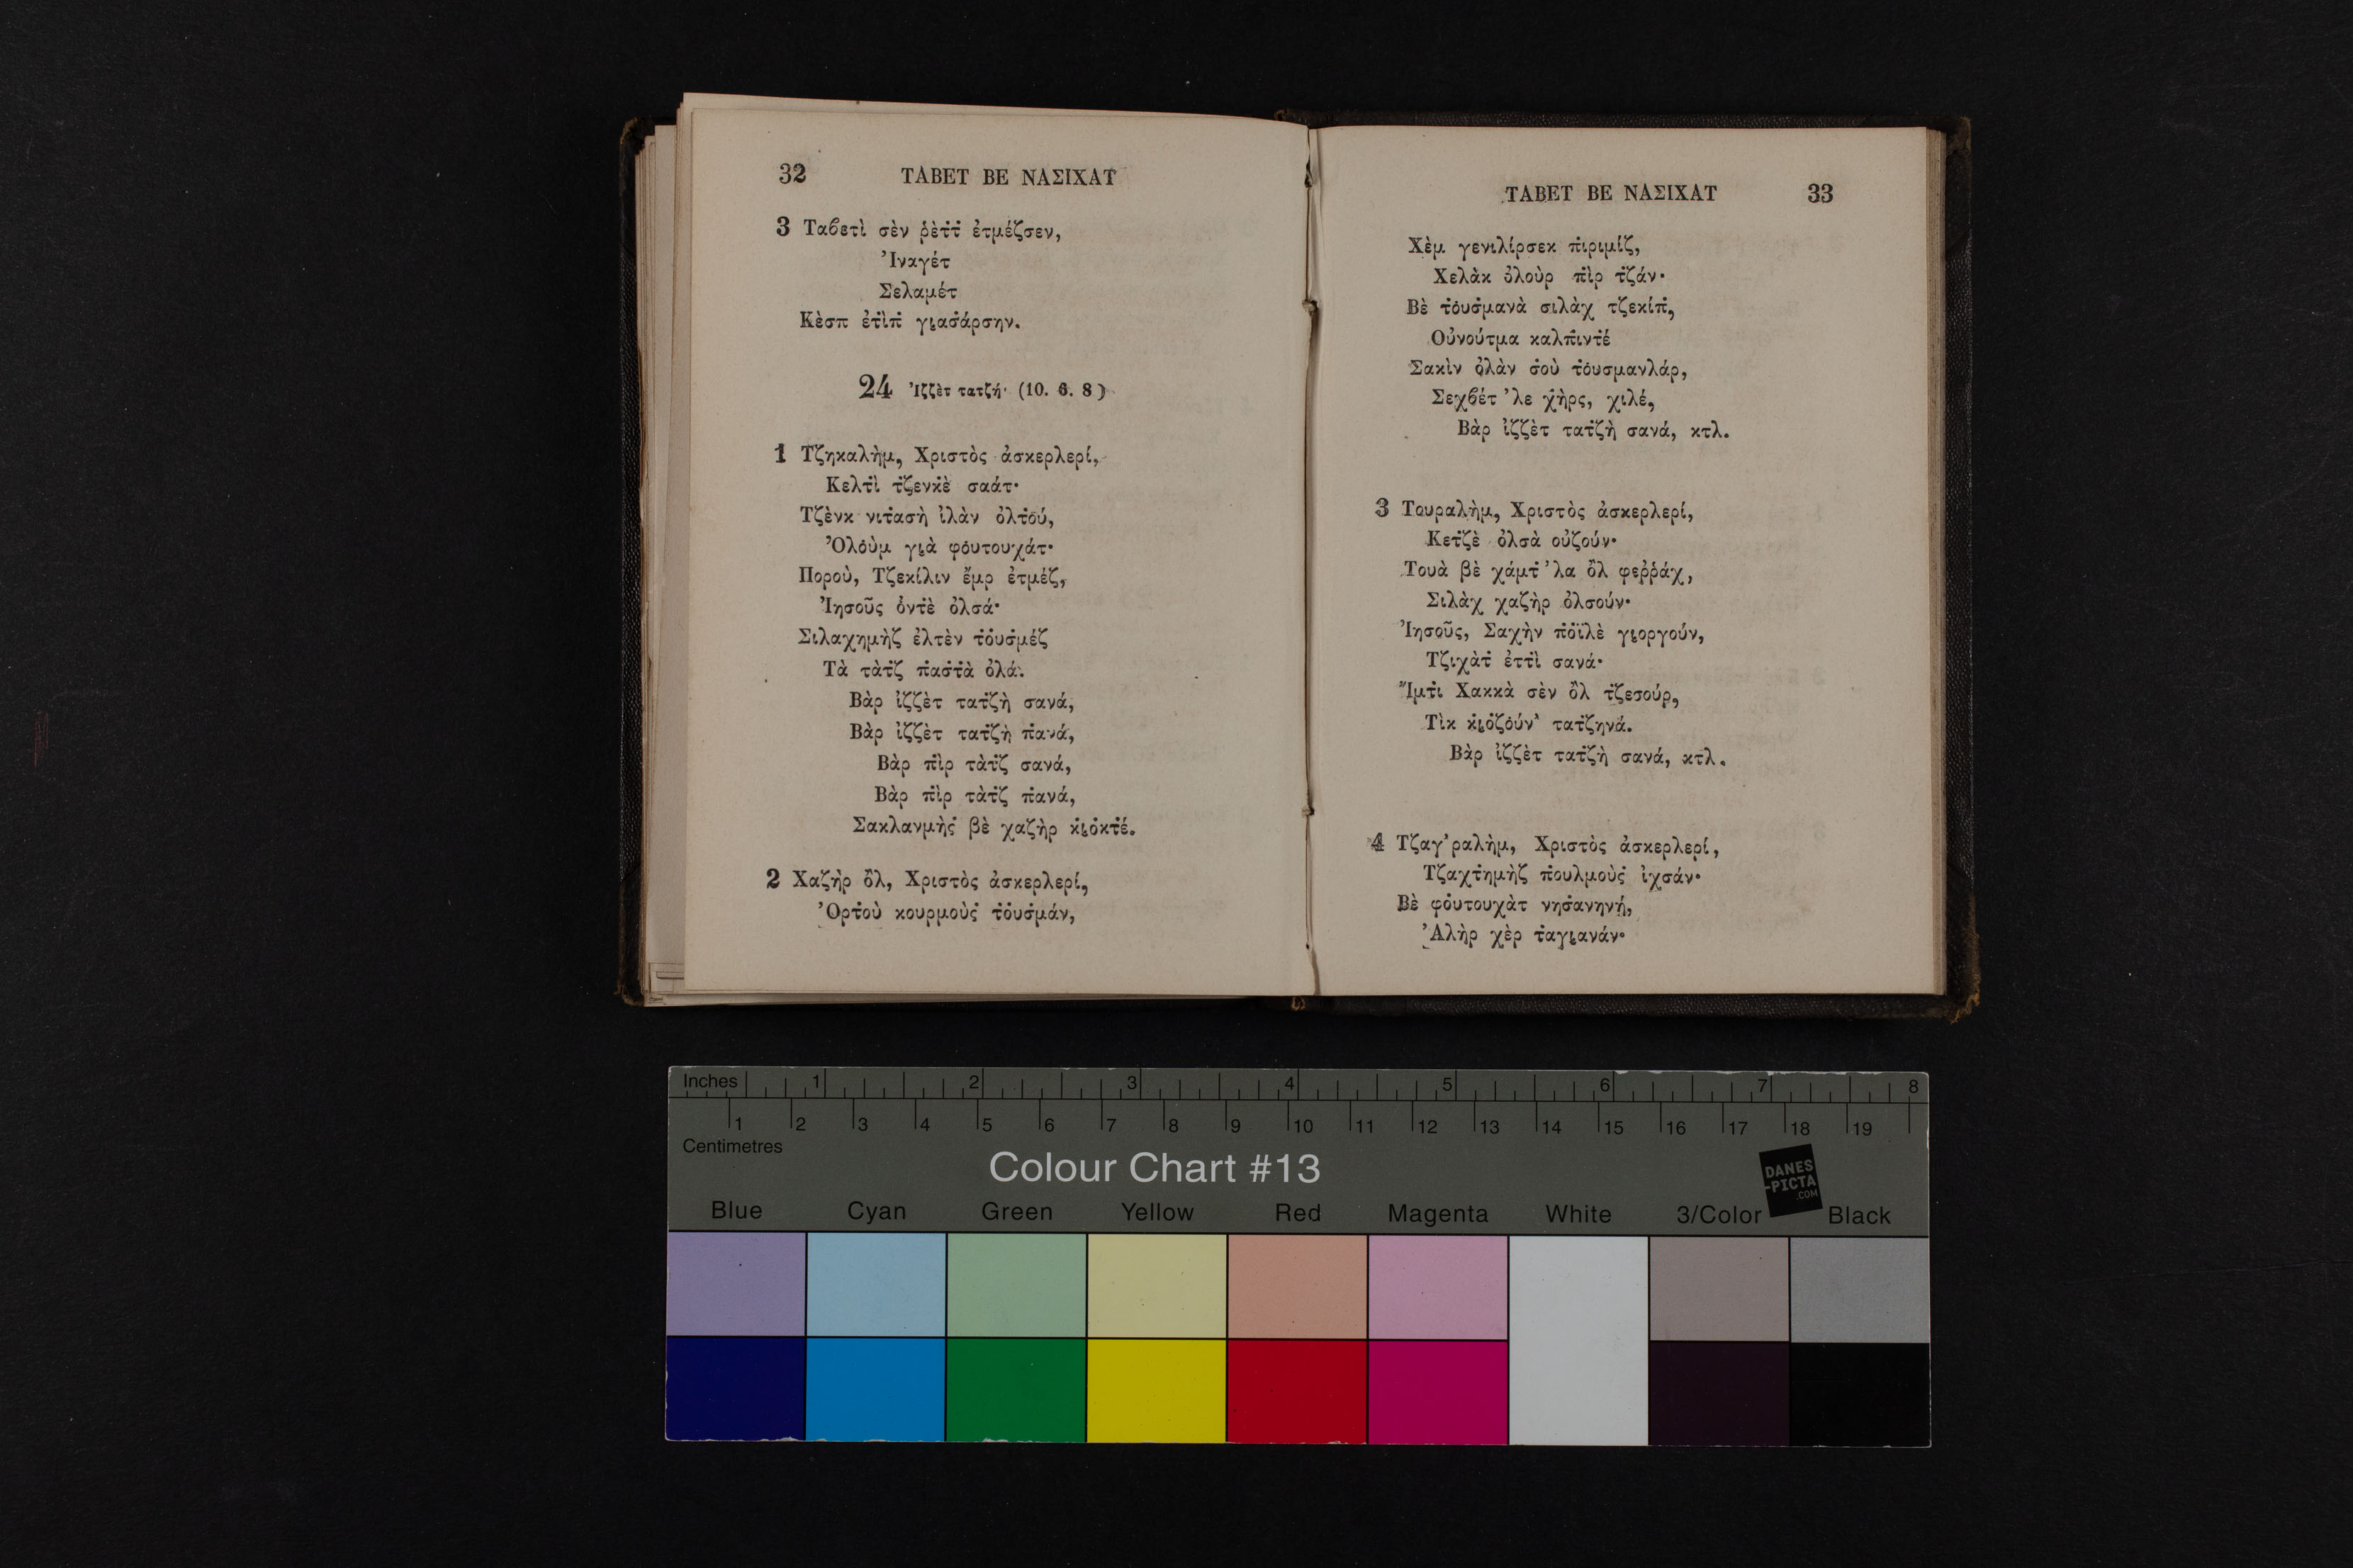 32 ΤΑΒΕΤ ΒΕ ΝΑΣΙΧΑΤ
3 Ταβετὶ σὲν ῥὲτ̇τ̇ ἐτμέζσεν,
Ἰναγέτ
Σελαμέτ
Κὲσπ ἐτ̇ὶπ̇ γι̡ασ̇άρσην.
24 Ἰζζὲτ τατζή· (10. 6. 8)
1 Τζηκαλὴμ, Χριστὸς ἀσκερλερί,
Κελτ̇ὶ τ̇ζενκ̇ὲ σαάτ·
Τζὲνκ νιτ̇ασὴ ἰλὰν ὀλτ̇ού,
Ὀλο̇ὺμ γι̡ὰ φο̇υτουχάτ·
Πορού, Τζεκίλιν ἔμρ ἐτμέζ,
Ἰησοῦς ὀντ̇ὲ ὀλσά·
Σιλαχημὴζ ἐλτὲν τ̇ο̇υσ̇μέζ
Τὰ τὰτ̇ζ π̇ασ̇τ̇ὰ ὀλά.
Βὰρ ἰζζὲτ τατ̇ζὴ σανά,
Βὰρ ἰζζὲτ τατ̇ζὴ π̇ανά,
Βὰρ π̇ὶρ τὰτ̇ζ σανά,
Βὰρ π̇ὶρ τὰτ̇ζ π̇ανά,
Σακλανμὴσ̇ βὲ χαζὴρ κ̇ι̡ο̇κτ̇έ.
2 Χαζὴρ ὂλ, Χριστὸς ἀσκερλερί,
Ὀρτ̇οὺ κουρμοὺσ̇ τ̇ο̇υσ̇μάν,
ΤΑΒΕΤ ΒΕ ΝΑΣΙΧΑΤ 33
Χὲμ γενιλίρσεκ π̇ιριμίζ,
Χελὰκ ὀλοὺρ π̇ὶρ τ̇ζάν·
Βὲ τ̇ο̇υσ̇μανὰ σιλὰχ τζεκίπ̇,
Οὐνούτμα καλπ̇ιντ̇έ
Σακὶν ὀλὰν σ̇οὺ τ̇ο̇υσμανλάρ,
Σεχβέτ 'λε χ̇ὴρς, χιλέ,
Βὰρ ἰζζὲτ τατ̇ζὴ σανά, κτλ.
3 Τουραλὴμ, Χριστὸς ἀσκερλερί,
Κετ̇ζὲ ὀλσὰ οὐζούν·
Τουὰ βὲ χάμτ̇ 'λα ὂλ φεῤῥάχ,
Σιλὰχ χαζὴρ ὀλσούν·
Ἰησοῦς, Σαχὴν π̇ο̇ϊλὲ γι̡οργούν,
Τζιχὰτ̇ ἐττ̇ὶ σανά·
Ἴμτ̇ι Χακκὰ σὲν ὂλ τ̇ζεσούρ,
Τὶκ κ̇ι̡ο̇ζο̇ύν' τατ̇ζηνά.
Βὰρ ἰζζὲτ τατ̇ζὴ σανά, κτλ.
4 Τζαγ'ραλὴμ, Χριστὸς ἀσκερλερί,
Τζαχτ̇ημὴζ π̇ουλμοὺσ̇ ἰχσάν·
Βὲ φο̇υτουχὰτ νησ̇ανηνή,
Ἀλὴρ χὲρ τ̇αγι̡ανάν·
Inches 1 2 3 4 5 6 7 8
1 2 3 4 5 6 7 8 9 10 11 12 13 14 15 16 17 18 19
Centimetres
Colour Chart #13
DANES
-PICTA
.COM
Blue Cyan Green Yellow Red Magenta White 3/Color Black